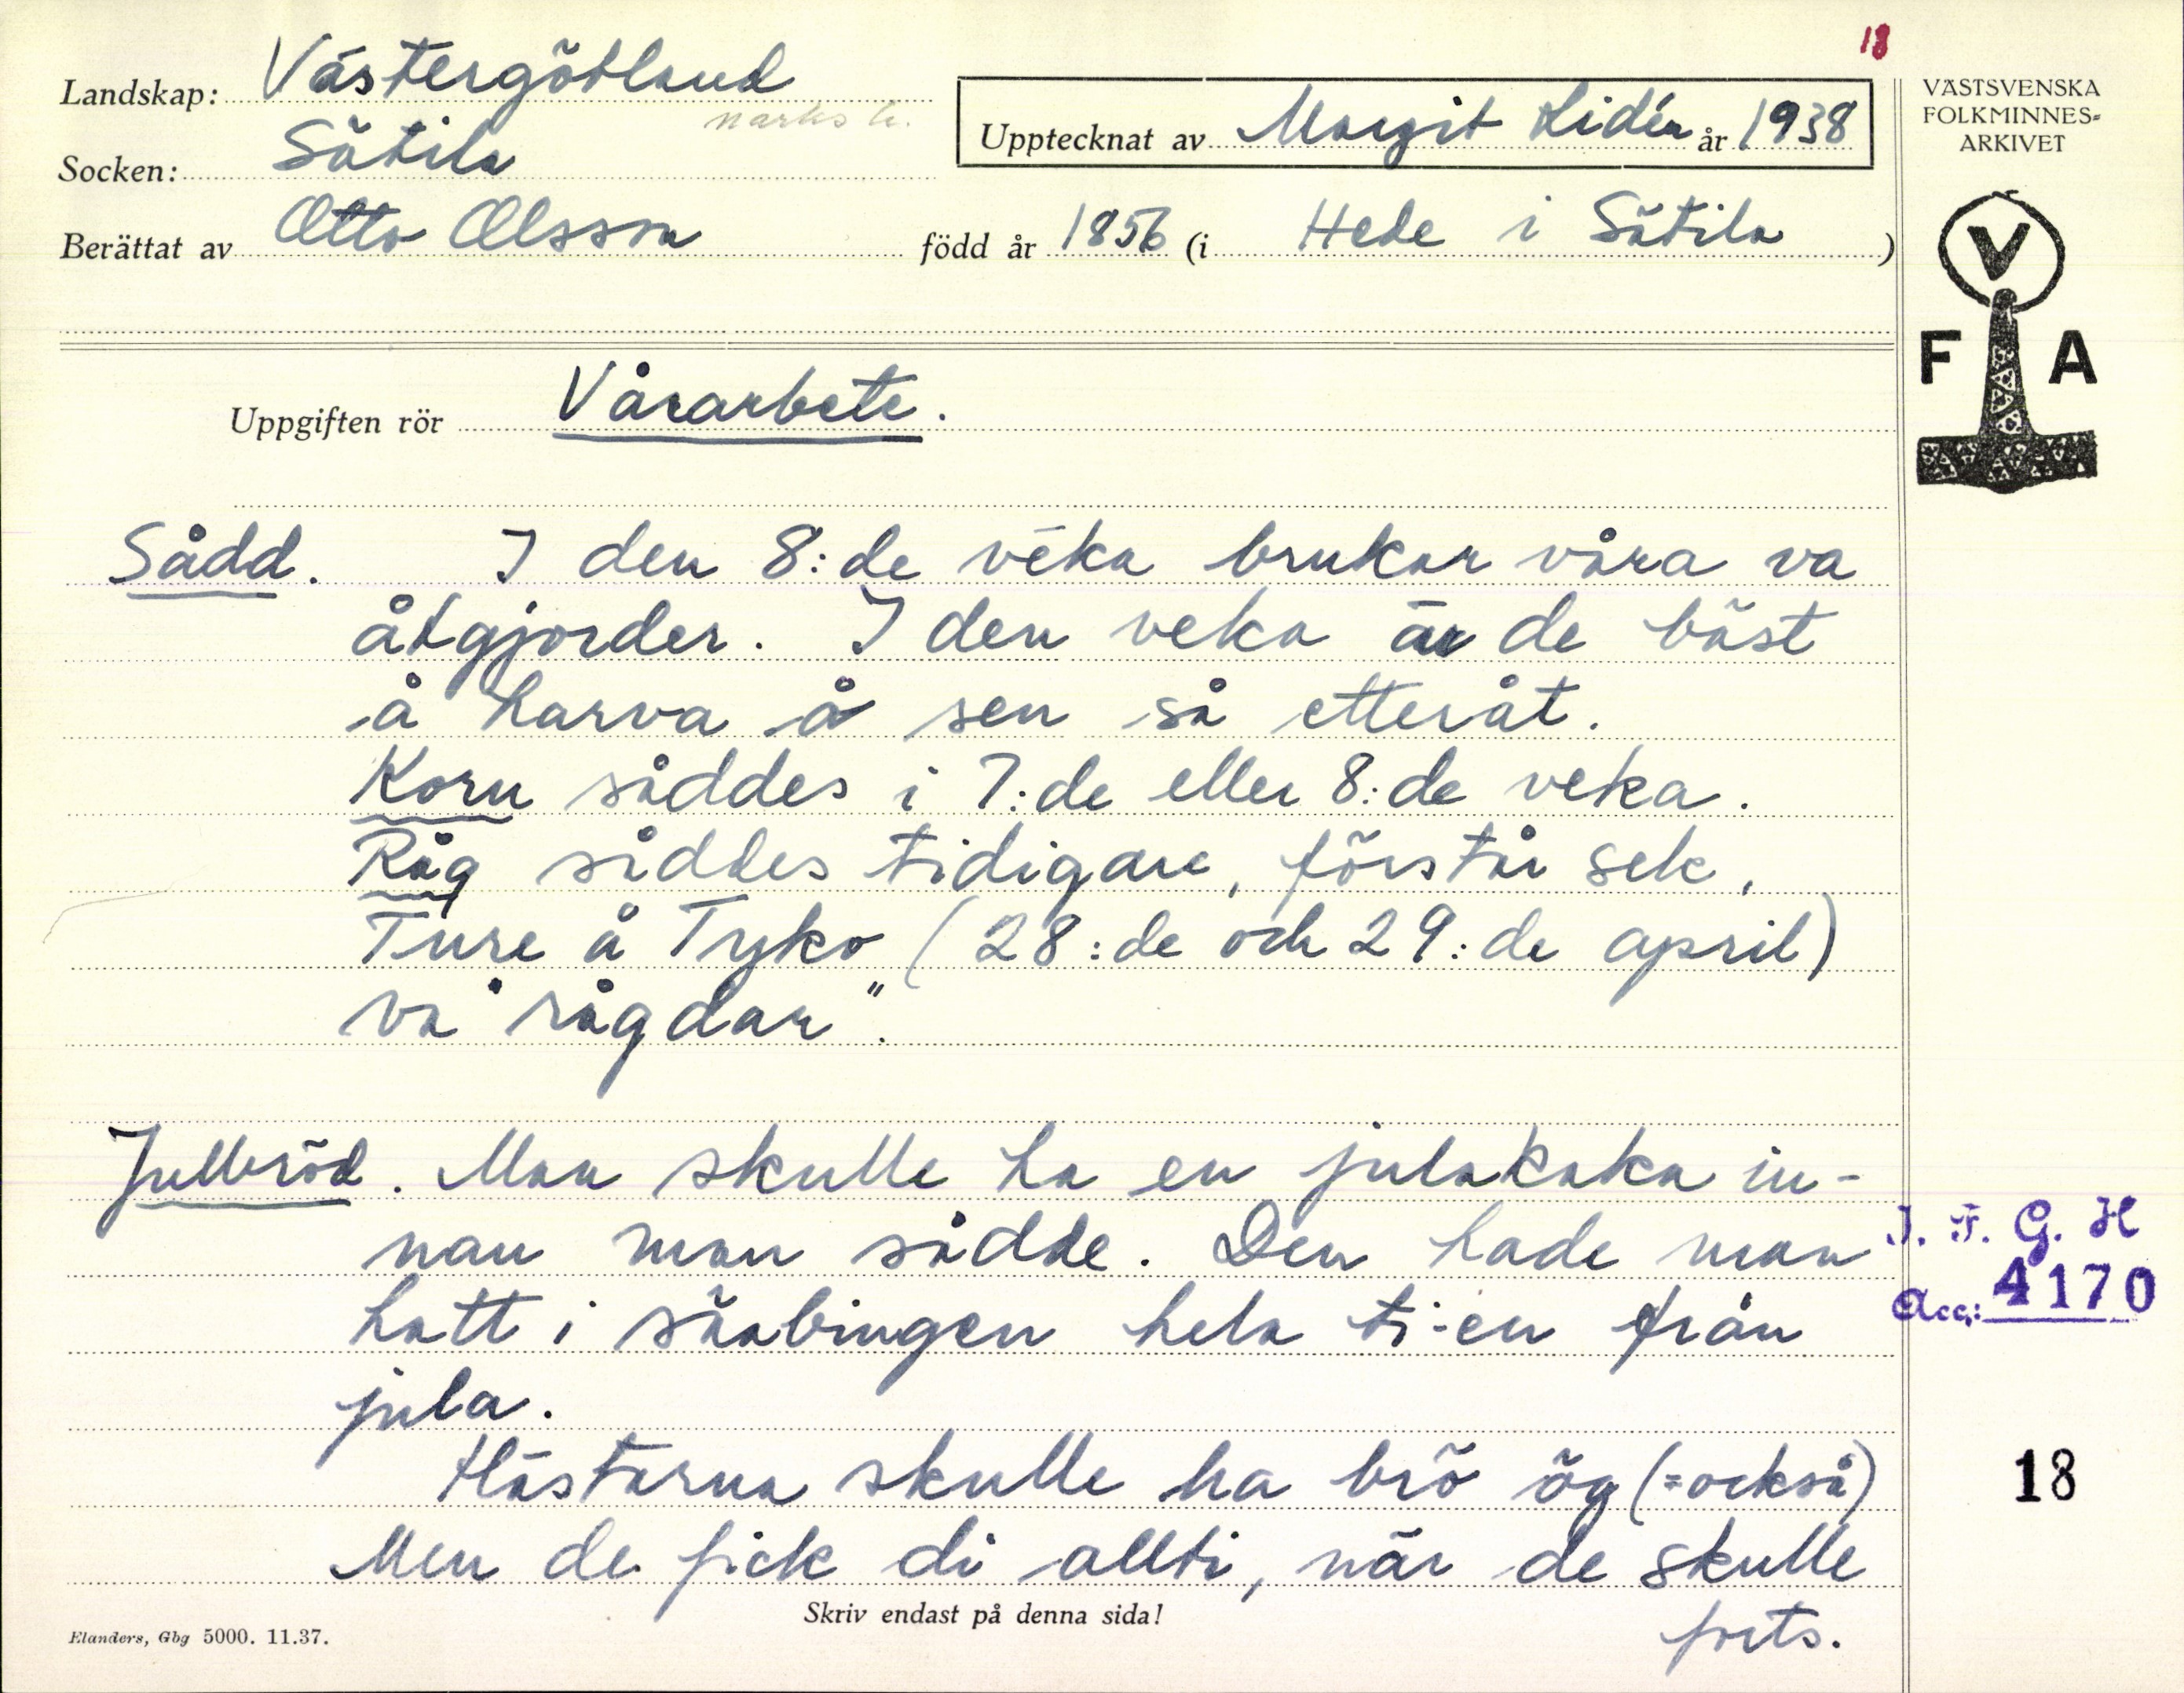 18
Landskap: Västergötland
Marks h.
Socken: Sätila
Upptecknat av Margit Lidén år 1938
Berättat av Otto Olsson född år 1856 (i Hede i Sätila)
VÄSTSVENSKA
FOLKMINNES=
ARKIVET
V
F A
Uppgiften rör Vårarbete.
Sådd. I den 8:de veka brukar våra va
åtgjorder. I den veka är de bäst
å harva å sen så etteråt.
Korn såddes i 7:de eller 8:de veka.
Råg såddes tidigare, förstår sek,
Ture å Tyko (28:de och 29:de april)
va "rågdar".
Julbröd. Man skulle ha en julakaka in-
nan man sådde. Den hade man
hatt i säabingen hela ti-en från
jula.
Hästarna skulle ha brö ög (=också)
Men de fick di allti, när de skulle
forts.
I. F. G. H
Acc: 4170
18
Skriv endast på denna sida!
Elanders, Gbg 5000. 11.37.